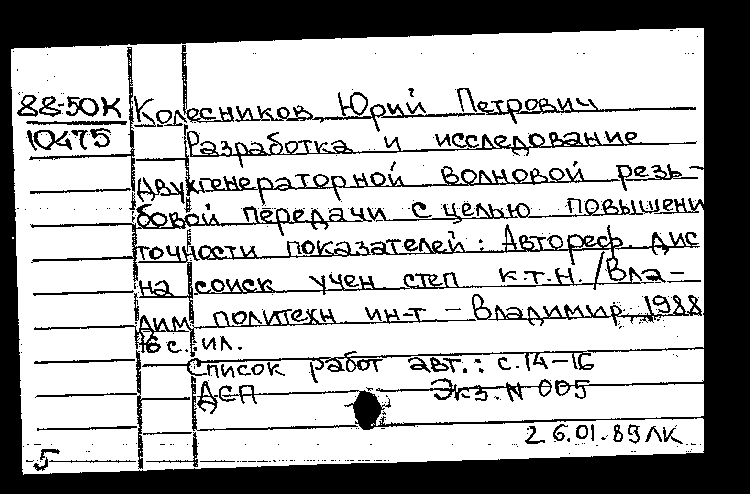 88-50К Колесников, Юрий Петрович
10475 Разработка и исследование
двухгенераторной волновой резь-
бовой передачи с целью повышени
точности показателей: Автореф. дис
на соиск учен степ к.т.н. /Вла-
дим политехн ин-т - Владимир, 1988
16 с. ил.
Список работ авт.: с. 14-16
ДСП Экз. N 005
26.01.89 ЛК
5